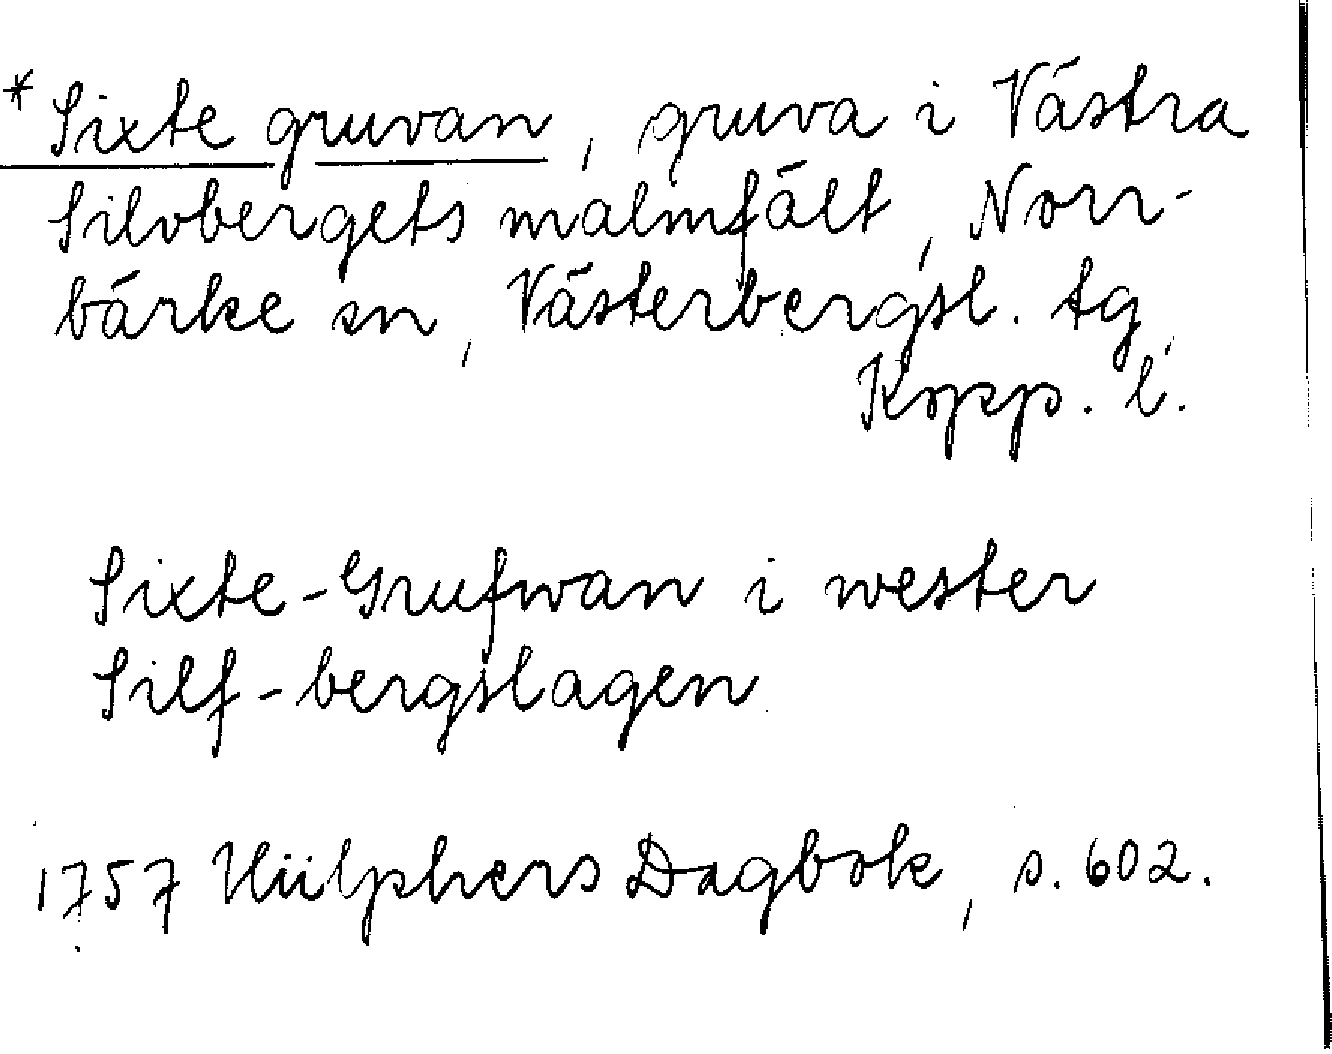 * Sixte gruvan, gruva i Västra
Silvbergets malmfält, Norr-
bärke sn, Västerbergsl. tg,
Kopp. l.
Sixte-Grufwan i wester
Silf-bergslagen
1757 Hülphers Dagbok, s. 602.